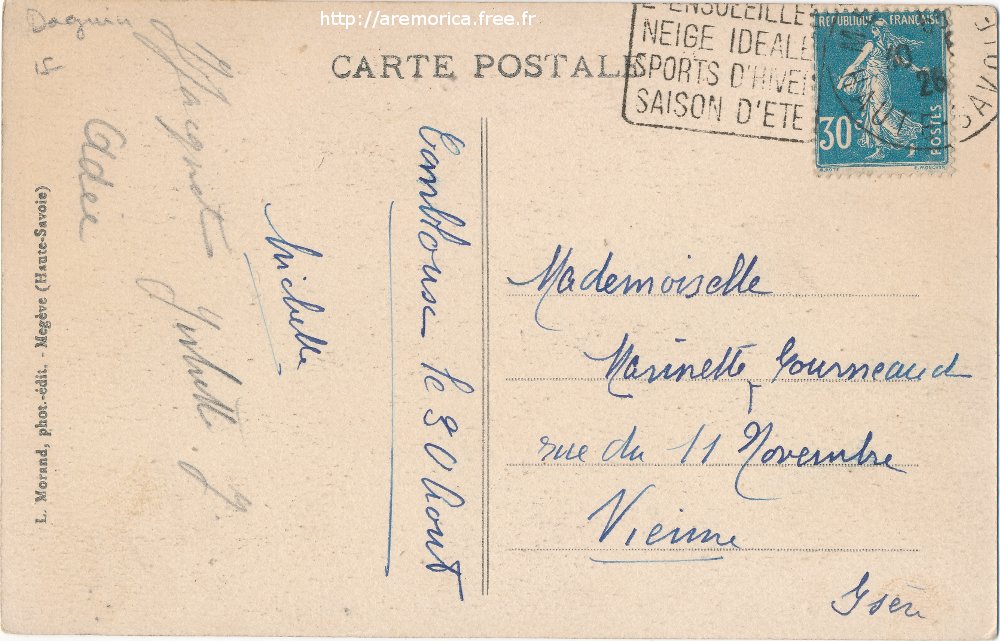 http://aremorica.free.fr
Daguin
CARTE POSTALE
ENSOLEILLE
NEIGE IDEALE
SPORTS D'HIVER
SAISON D'ETE
REPUBLIQUE FRANÇAISE
30
POSTES
26
SAVOIE
L. Morand, phot.-édit. - Megève (Haute-Savoie)
Jacquot
Juliette J.
Michelle
Combloux le 30 Aout
Mademoiselle
Marinette Gourneaud
rue du 11 Novembre
Vienne
Isère